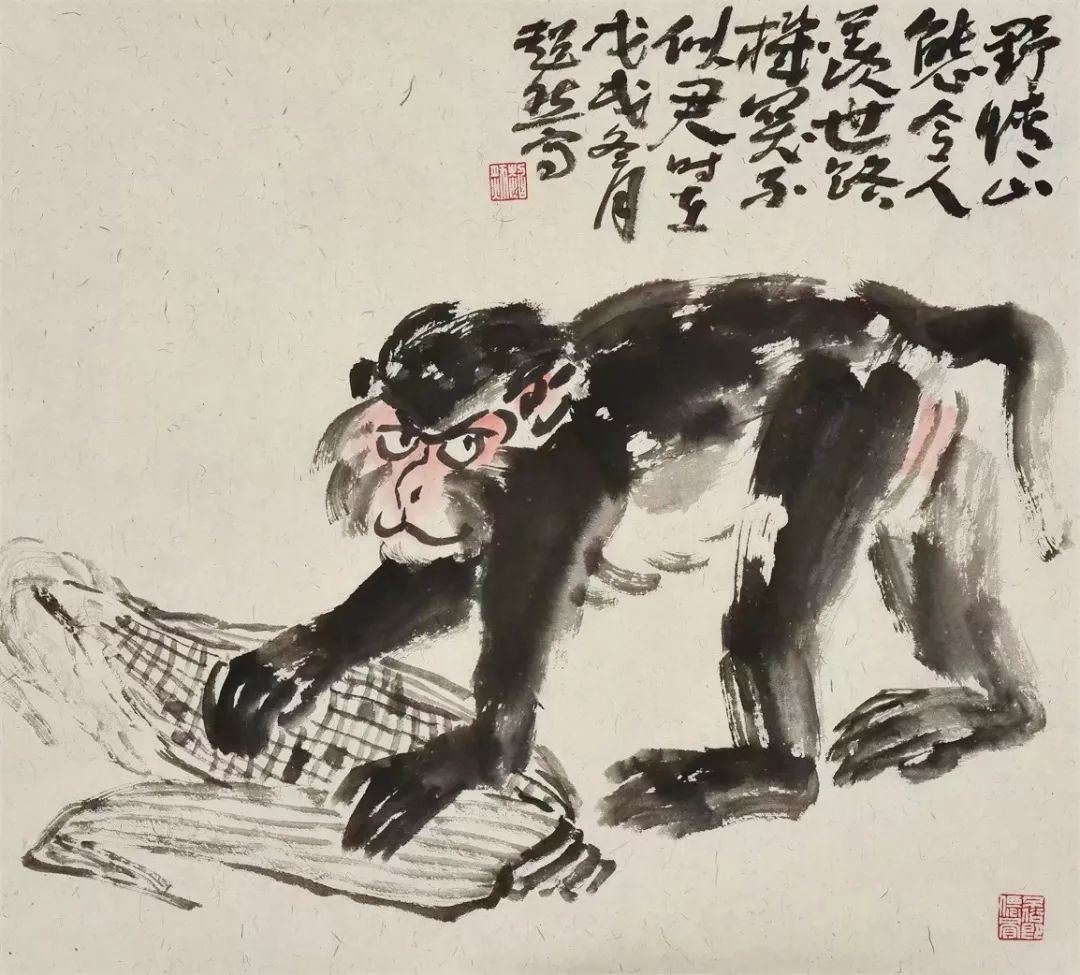 野情山
態令人
羨世路
機不
似君时在
戊戌冬月
超然写